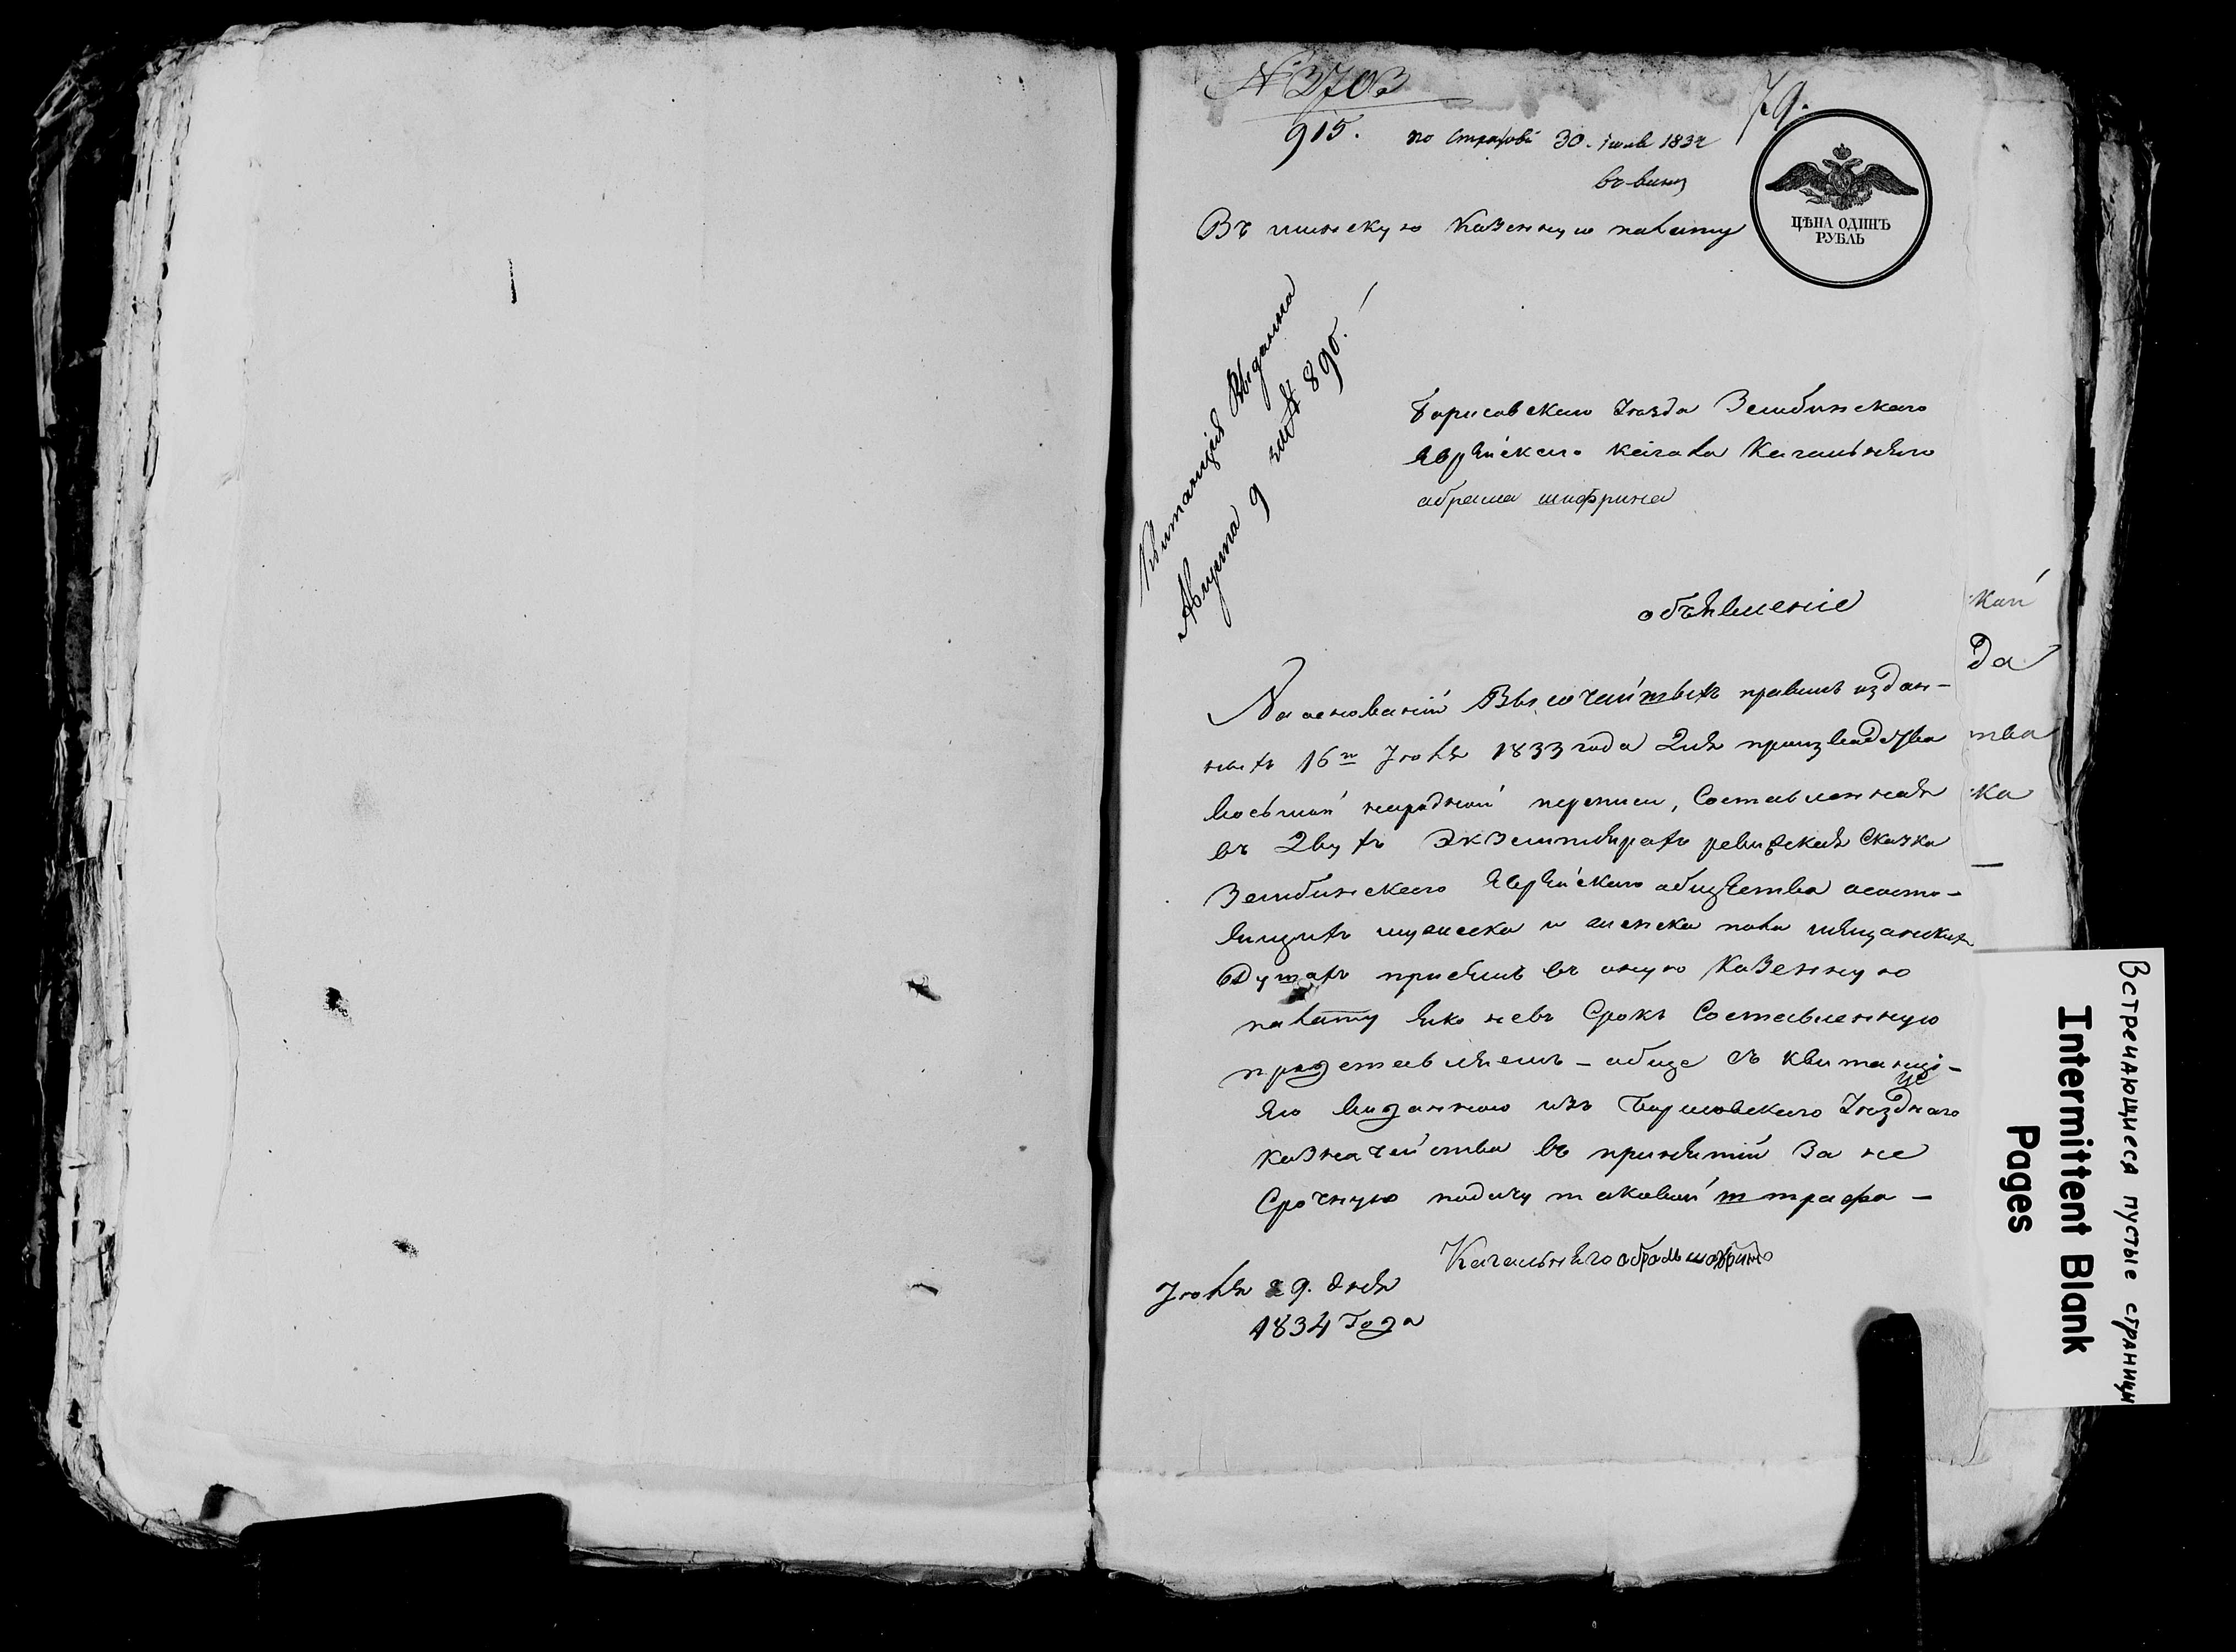 № 3703
79.
915. по 30. 1834
ЦѢНА ОДИНЪ
РУБЛЬ
Въ минскую Казенную палату
Квитанція выданна
Августа 9 890.
Борисовскаго уезда Зембинскаго
еврейскаго кагала Кагальнаго
абрама шифрина
объявленіе
На основаніи Высочайшыхъ правилъ издан-
ныхъ 16го Июня 1833 года для производства
восьмой народной переписи, Составленная
въ двухъ Экземплярахъ ревизская Сказка
Зембинскаго еврейскаго общества ососто-
ящихъ мужеска и женска пола мещанскихъ
душахъ при семъ въ оную Казенную
палату яко невъ Срокъ Составленную
представляемъ - обще съ квитанці-
ею виданною изъ Борисовскаго уезднаго
казначейства въ принятіи За не
Срочную подачу таковой штрафа -
Кагальнаго
29. дня
1834 Года
кой
да
тва
ка
Встречающиеся пустые страницы
Intermittent Blank
Pages